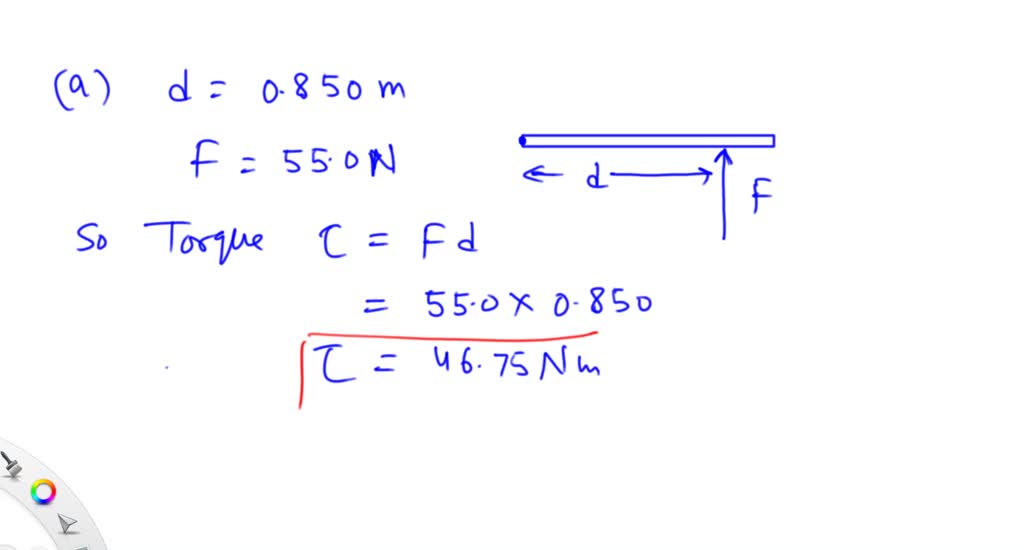 (a) d = 0.850 m
F = 55.0 N
d
F
So Torque τ = Fd
= 55.0 x 0.850
τ = 46.75 Nm